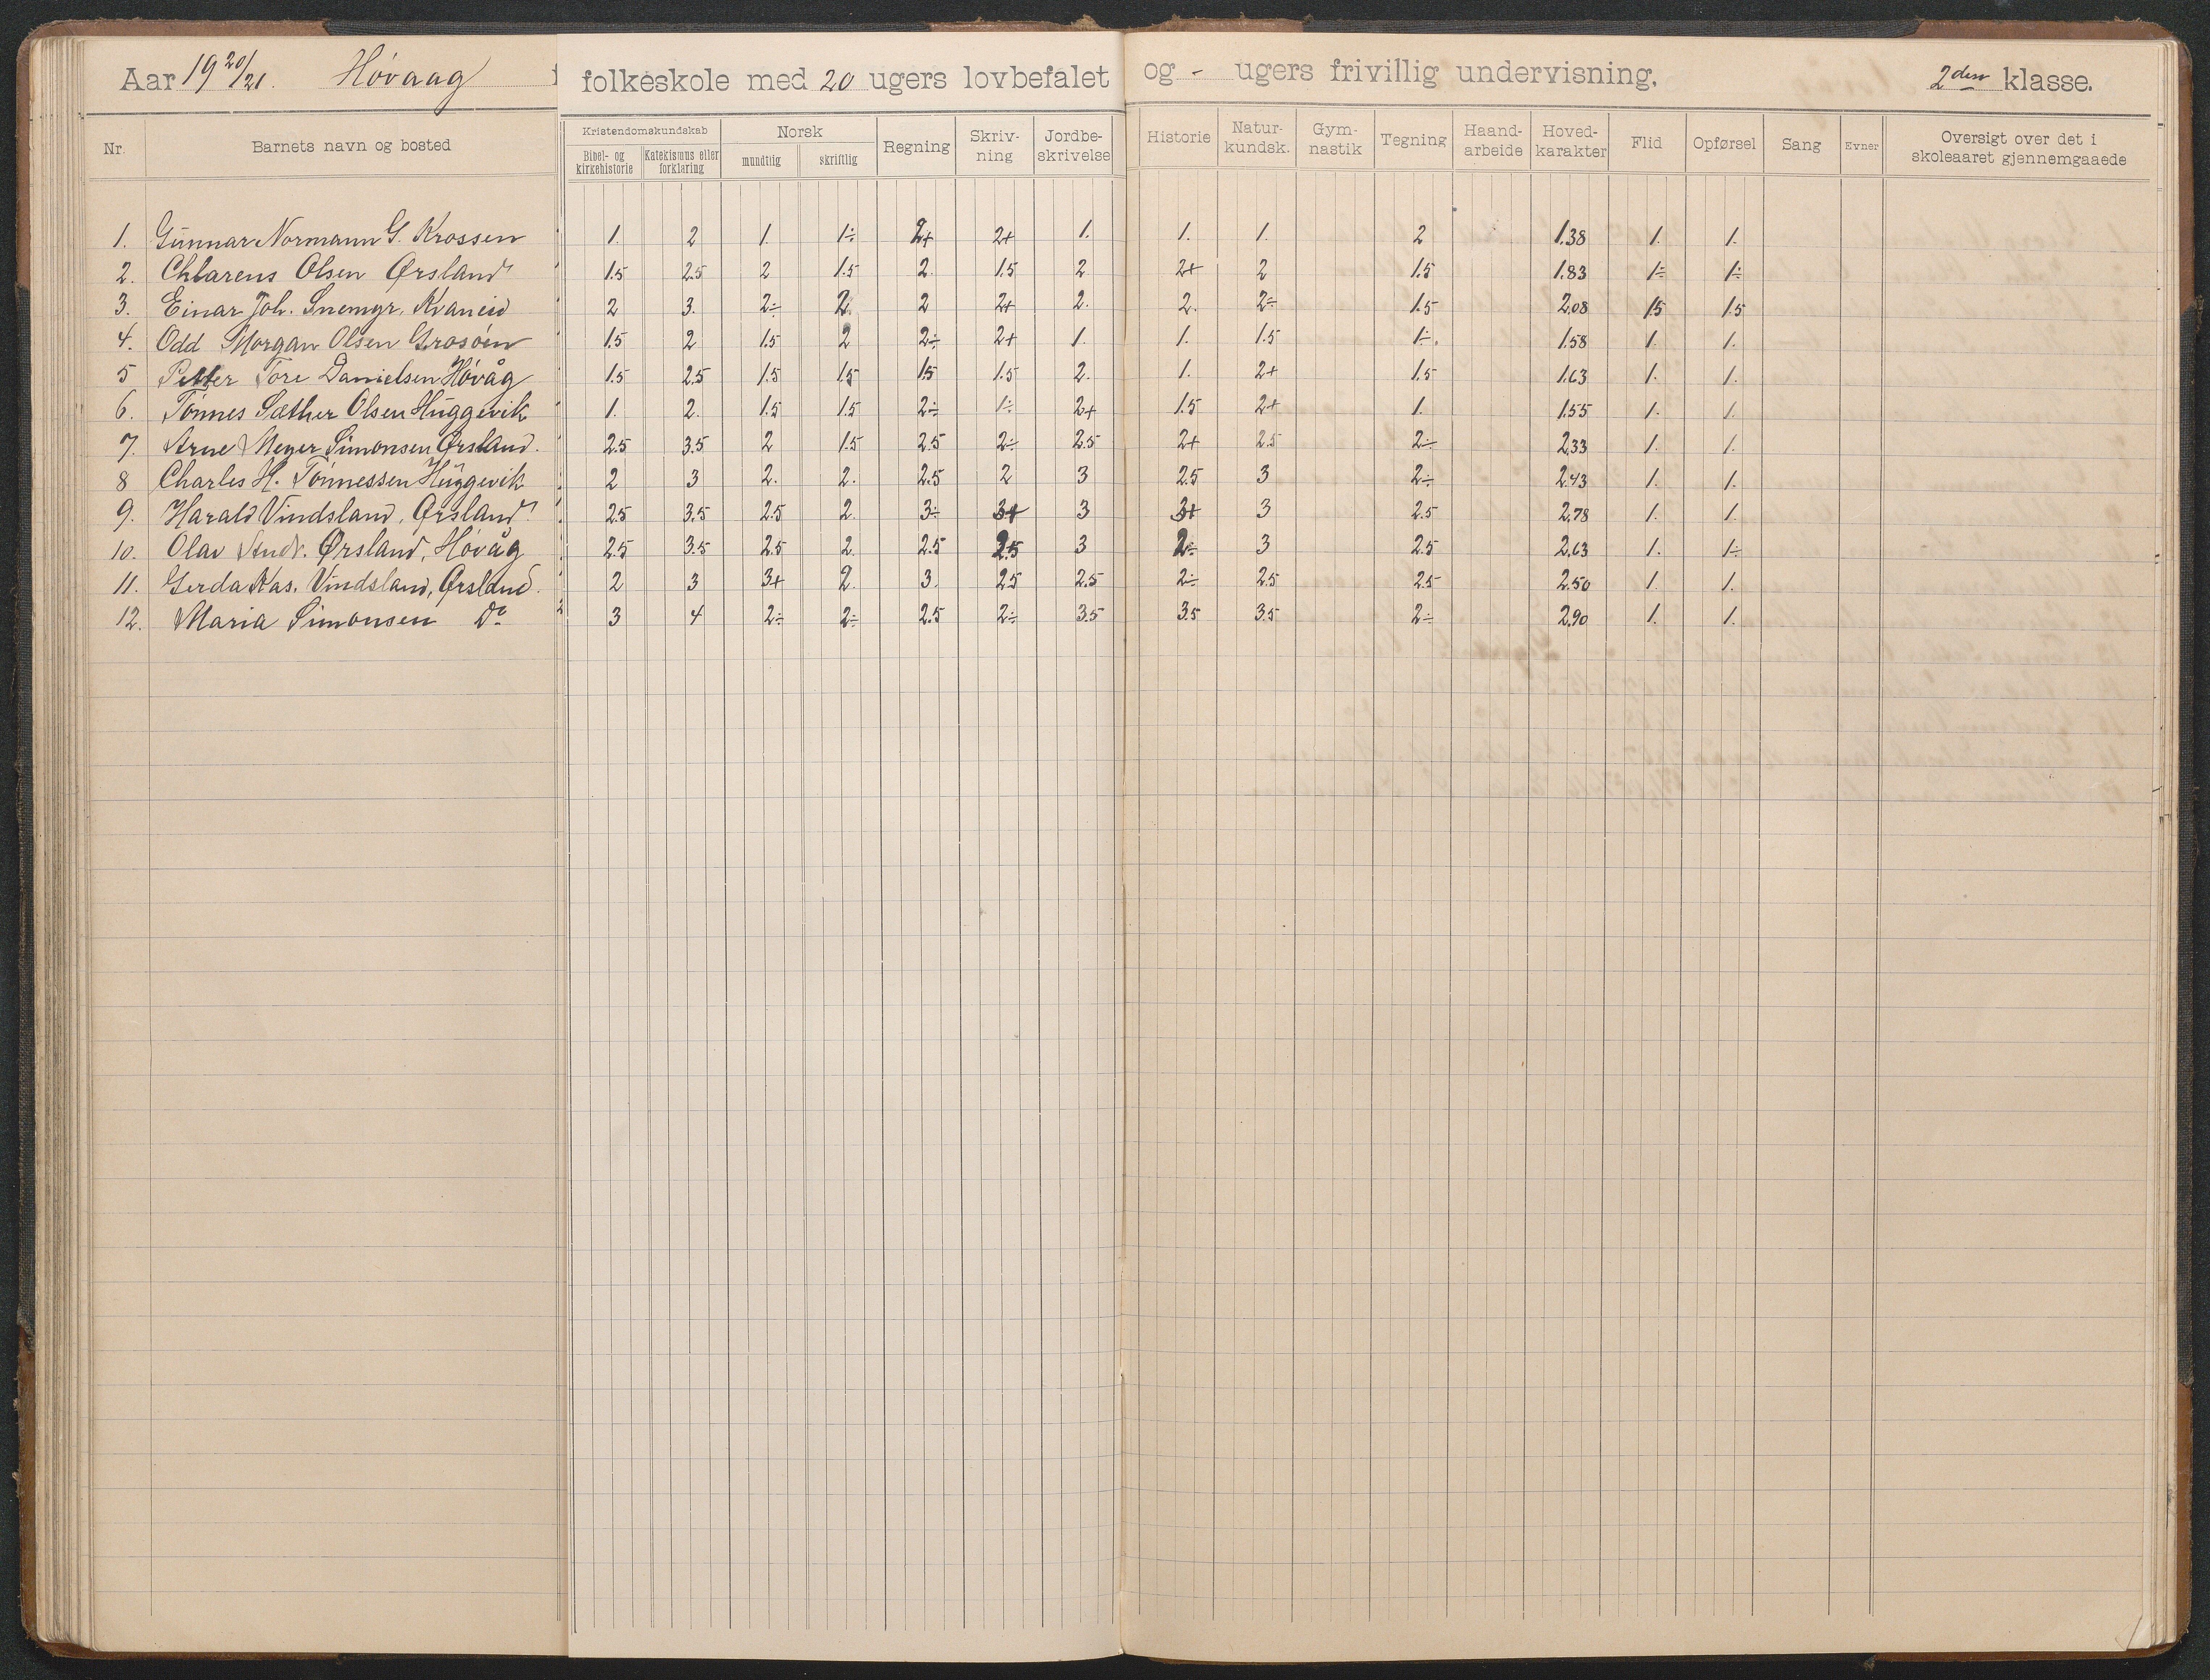 Aar 19 20/21. Høvaag folkeskole med 20 ugers lovbefalet og - ugers frivillig undervisning, 2den klasse.
Nr. Barnets navn og bosted Kristendomskundskab Bibel- og kirkehistorie Katekismus eller forklaring Norsk mundtlig skriftlig Regning Skriv-ning Jordbe-skrivelse Historie Natur-kundsk. Gym-nastik Tegning Haand-arbeide Hoved-karakter Flid Opførsel Sang Evner Oversigt over det i skoleaaret gjennemgaaede
1. Gunnar Normann G. Krossen 1. 2 1. 1÷ 2+ 2+ 1. 1. 1. 2 1.38 1. 1.
2. Chlarens Olsen Ørsland 1.5 2.5 2 1.5 2. 1.5 2 2+ 2 1.5 1.83 1÷ 1÷
3. Einar Joh. Snemyr, Kvaneid 2 3. 2÷ 2. 2 2+ 2. 2. 2÷ 1.5 2.08 1.5 1.5
4. Odd Morgan Olsen Grosøen 1.5 2 1.5 2 2÷ 2+ 1. 1. 1.5 1÷. 1.58 1. 1.
5 Petter Tore Danielsen Høvåg 1.5 2.5 1.5 1.5 1.5 1.5 2. 1. 2+ 1.5 1.63 1. 1.
6. Tønnes Sæther Olsen Huggevik 1. 2. 1.5 1.5 2÷ 1÷ 2+ 1.5 2+ 1. 1.55 1. 1.
7. Arne Meyer Simonsen Ørsland. 2.5 3.5 2 1.5 2.5 2÷ 2.5 2+ 2.5 2÷ 2.33 1. 1.
8 Charles H. Tønnessen Huggevik 2 3 2. 2. 2.5 2 3 2.5 3 2÷ 2.43 1. 1.
9. Harald Vindsland, Ørsland 2.5 3.5 2.5 2. 3÷ 3+ 3 3+ 3 2.5 2.78 1. 1.
10. Olav Andr. Ørsland, Høvåg 2.5 3.5 2.5 2. 2.5 2.5 3 2÷ 3 2.5 2.63 1. 1÷
11. Gerda Kas. Vindsland, Ørsland. 2 3 3+ 2. 3. 2.5 2.5 2÷ 2.5 2.5 2.50 1. 1.
12. Maria Simonsen Do 3 4 2÷ 2÷ 2.5 2÷ 3.5 3.5 3.5 2÷ 2.90 1. 1.